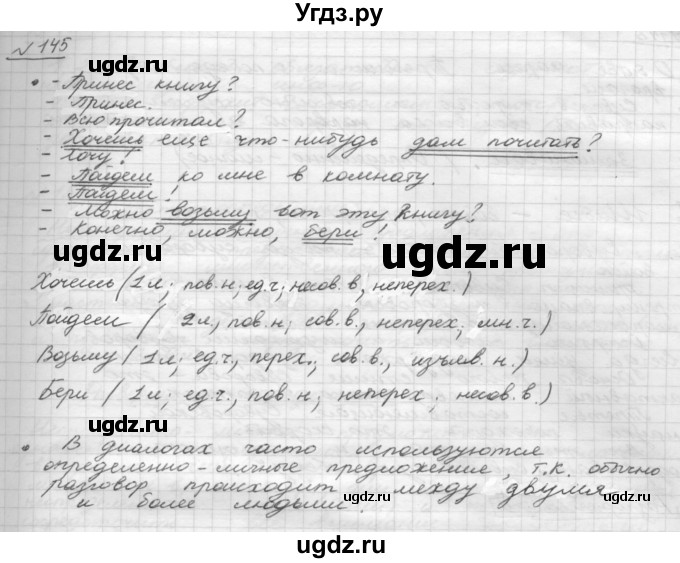 Угдз.ру
№ 145
• - Принес книгу?
- Принес.
- Всю прочитал?
- Хочешь еще что-нибудь дам почитать?
- Хочу!
- Пойдем ко мне в комнату.
- Пойдем!
- Можно возьму вот эту книгу?
- Конечно, можно, бери!
Хочешь (1л; пов.н; ед.ч; несов.в; неперех.)
Пойдем ( 2л, пов.н; сов.в., неперех, мн.ч.)
Возьму (1л; ед.ч, перех., сов.в., изъяв.н.)
Бери (1л; ед.ч., пов.н; неперех; несов.в.)
• В диалогах часто используются
определенно-личные предложения, т.к. обычно
разговор происходит между двумя
и более людьми.
ugdz.ru
ugdz.ru
ugdz.ru
ugdz.ru
ugdz.ru
ugdz.ru
ugdz.ru
ugdz.ru
ugdz.ru
ugdz.ru